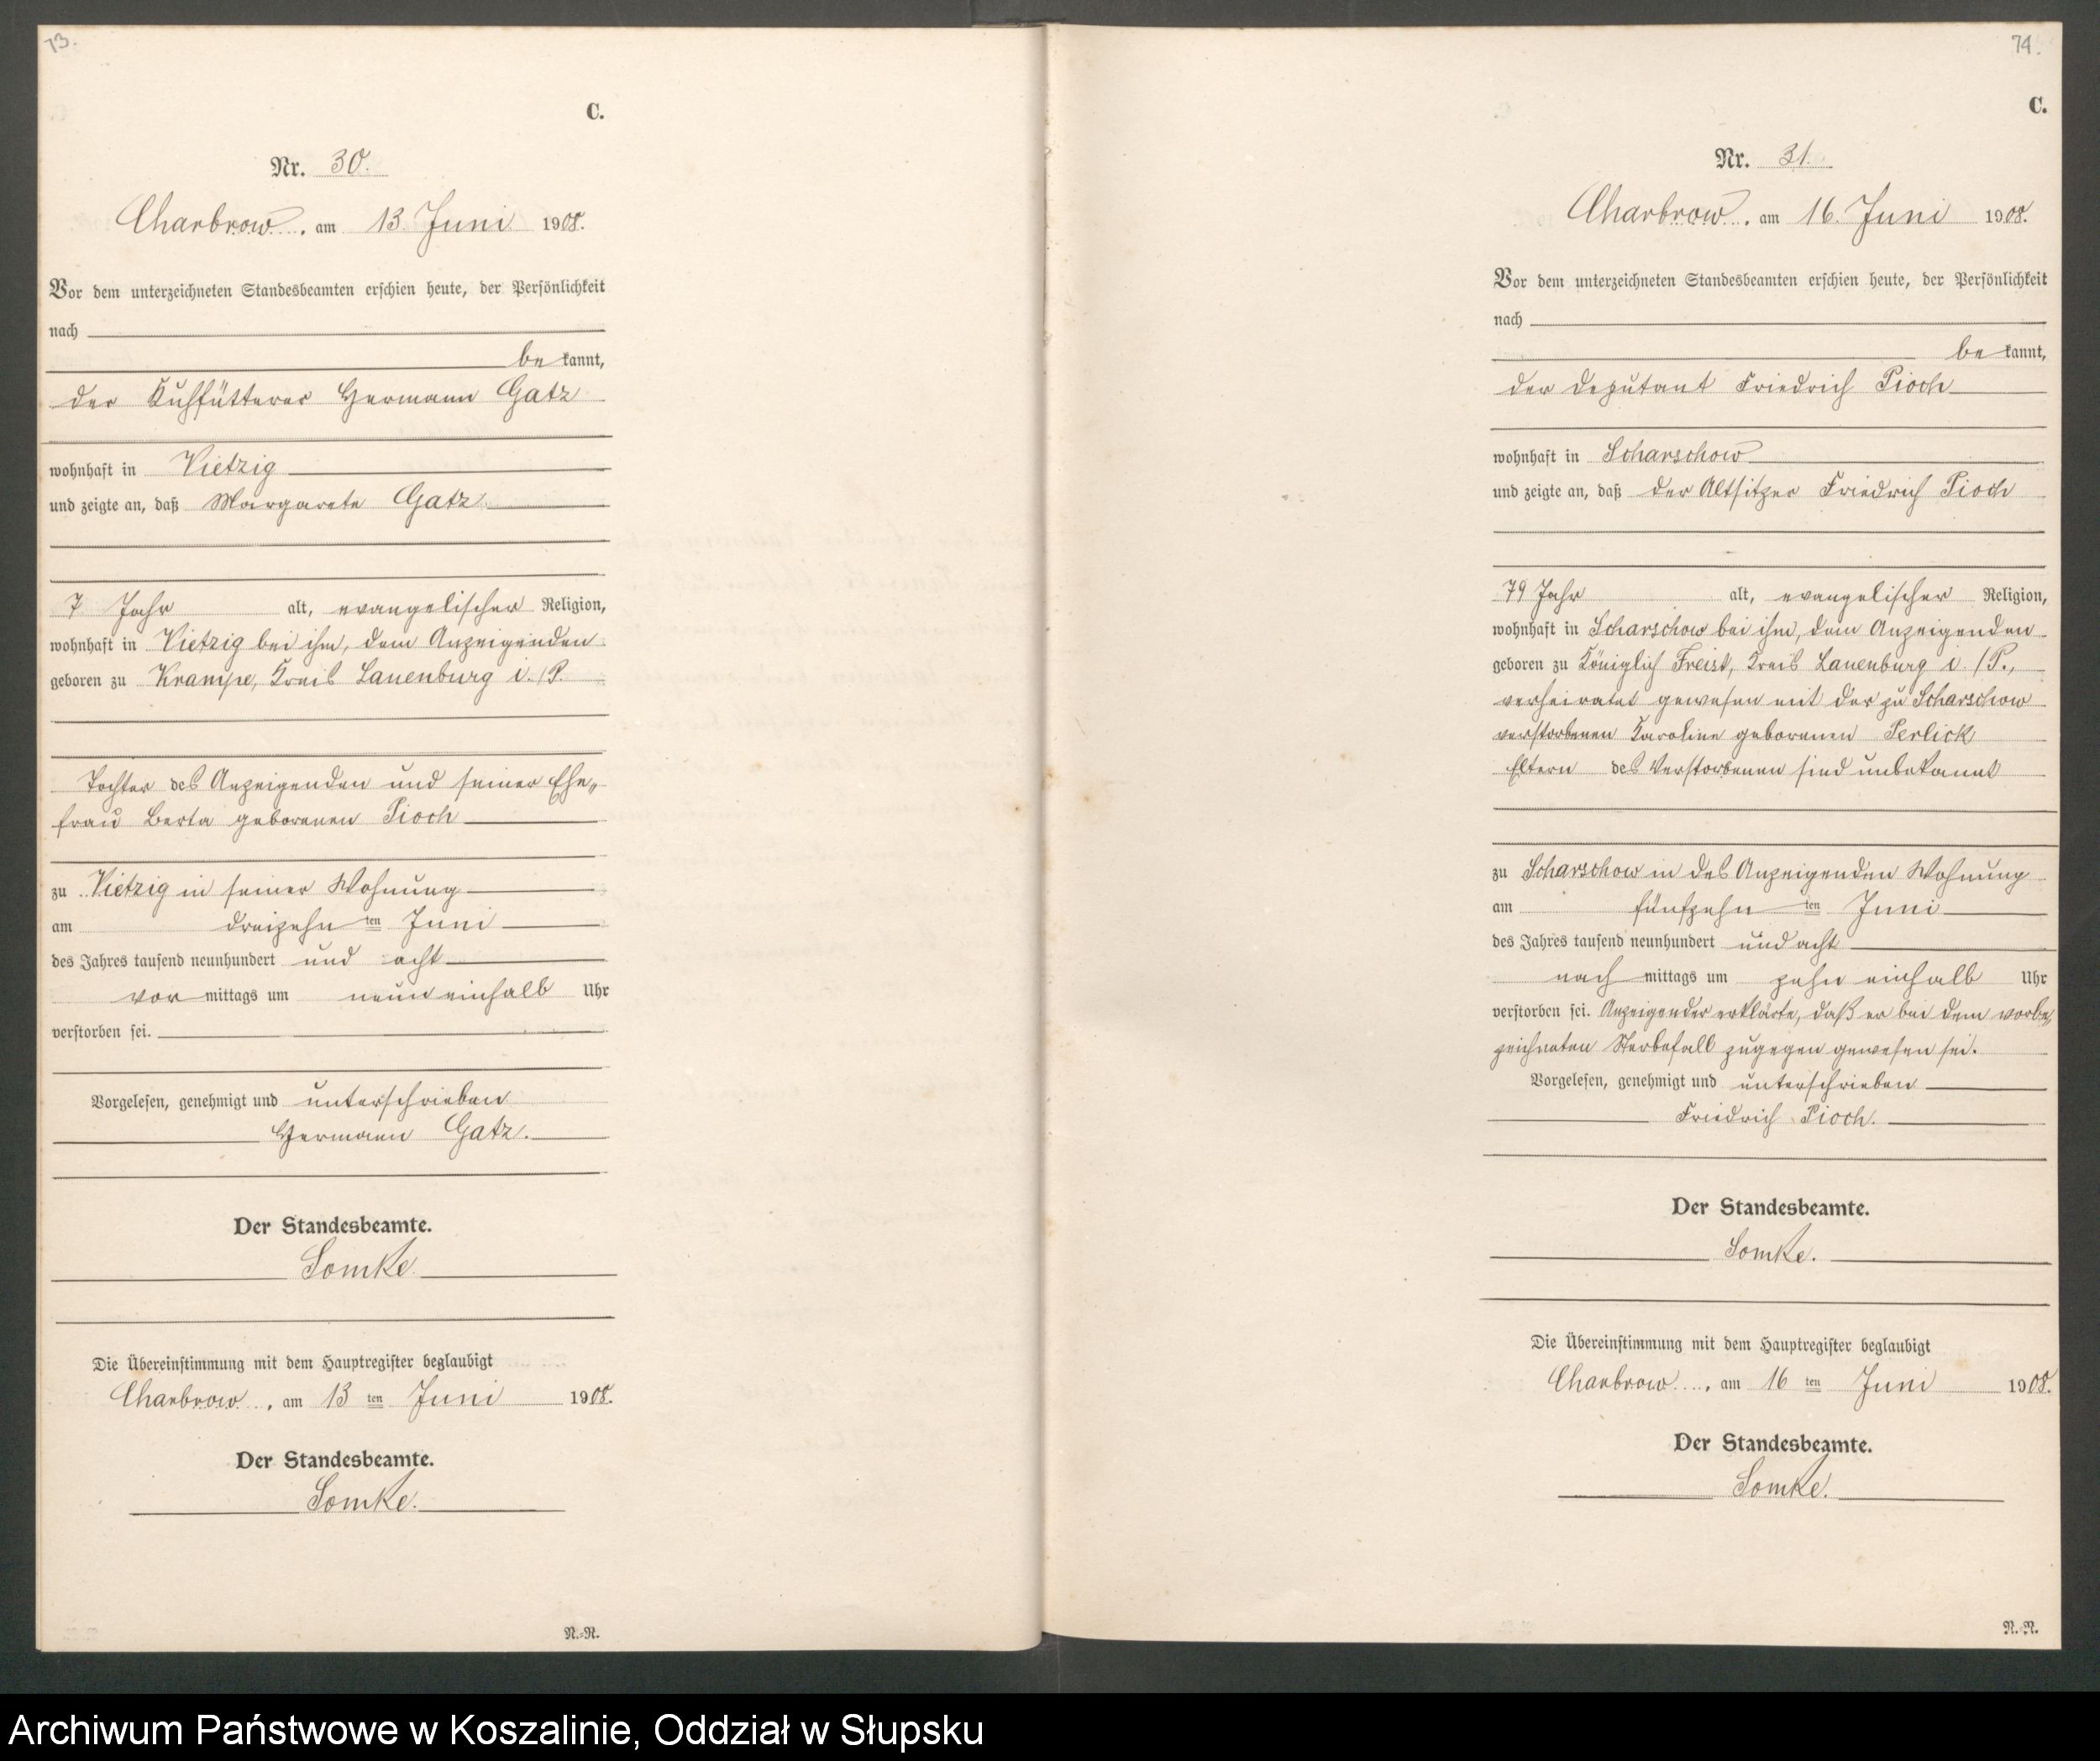 73.
C.
Nr. 30.
Charbrow, am 13. Juni 1908.
Vor dem unterzeichneten Standesbeamten erschien heute, der Persönlichkeit
nach
be kannt,
der Kuhfütterer Hermann Gatz
wohnhaft in Vietzig
und zeigte an, daß Margarete Gatz
7 Jahr alt, evangelischer Religion,
wohnhaft in Vietzig bei ihm, dem Anzeigenden
geboren zu Krampe, Kreis Lauenburg i./P.
Tochter des Anzeigenden und seiner Ehe„
frau Berta geborenen Pioch
zu Vietzig in seiner Wohnung
am dreizehn ten Juni
des Jahres tausend neunhundert und acht
vor mittags um neun einhalb Uhr
verstorben sei.
Vorgelesen, genehmigt und unterschrieben
Hermann Gatz.
Der Standesbeamte.
Somke.
Die Übereinstimmung mit dem Hauptregister beglaubigt
Charbrow, am 13 ten Juni 1908.
Der Standesbeamte.
Somke.
N.-N.
74.
C.
Nr. 31.
Charbrow, am 16. Juni 1908.
Vor dem unterzeichneten Standesbeamten erschien heute, der Persönlichkeit
nach
be kannt,
der Deputant Friedrich Pioch
wohnhaft in Scharschow
und zeigte an, daß der Altsitzer Friedrich Pioch
79 Jahr alt, evangelischer Religion,
wohnhaft in Scharschow bei ihm, dem Anzeigenden
geboren zu Königlich Freist, Kreis Lauenburg i./P.,
verheiratet gewesen mit der zu Scharschow
verstorbenen Karoline geborenen Perlick
Eltern des Verstorbenen sind unbekannt
zu Scharschow in des Anzeigenden Wohnung
am fünfzehn ten Juni
des Jahres tausend neunhundert und acht
nach mittags um zehn einhalb Uhr
verstorben sei. Anzeigender erklärte, daß er bei dem vorbe„
zeichneten Sterbefall zugegen gewesen sei.
Vorgelesen, genehmigt und unterschrieben
Friedrich Pioch.
Der Standesbeamte.
Somke.
Die Übereinstimmung mit dem Hauptregister beglaubigt
Charbrow, am 16 ten Juni 1908.
Der Standesbeamte.
Somke.
N.-N.
Archiwum Państwowe w Koszalinie, Oddział w Słupsku